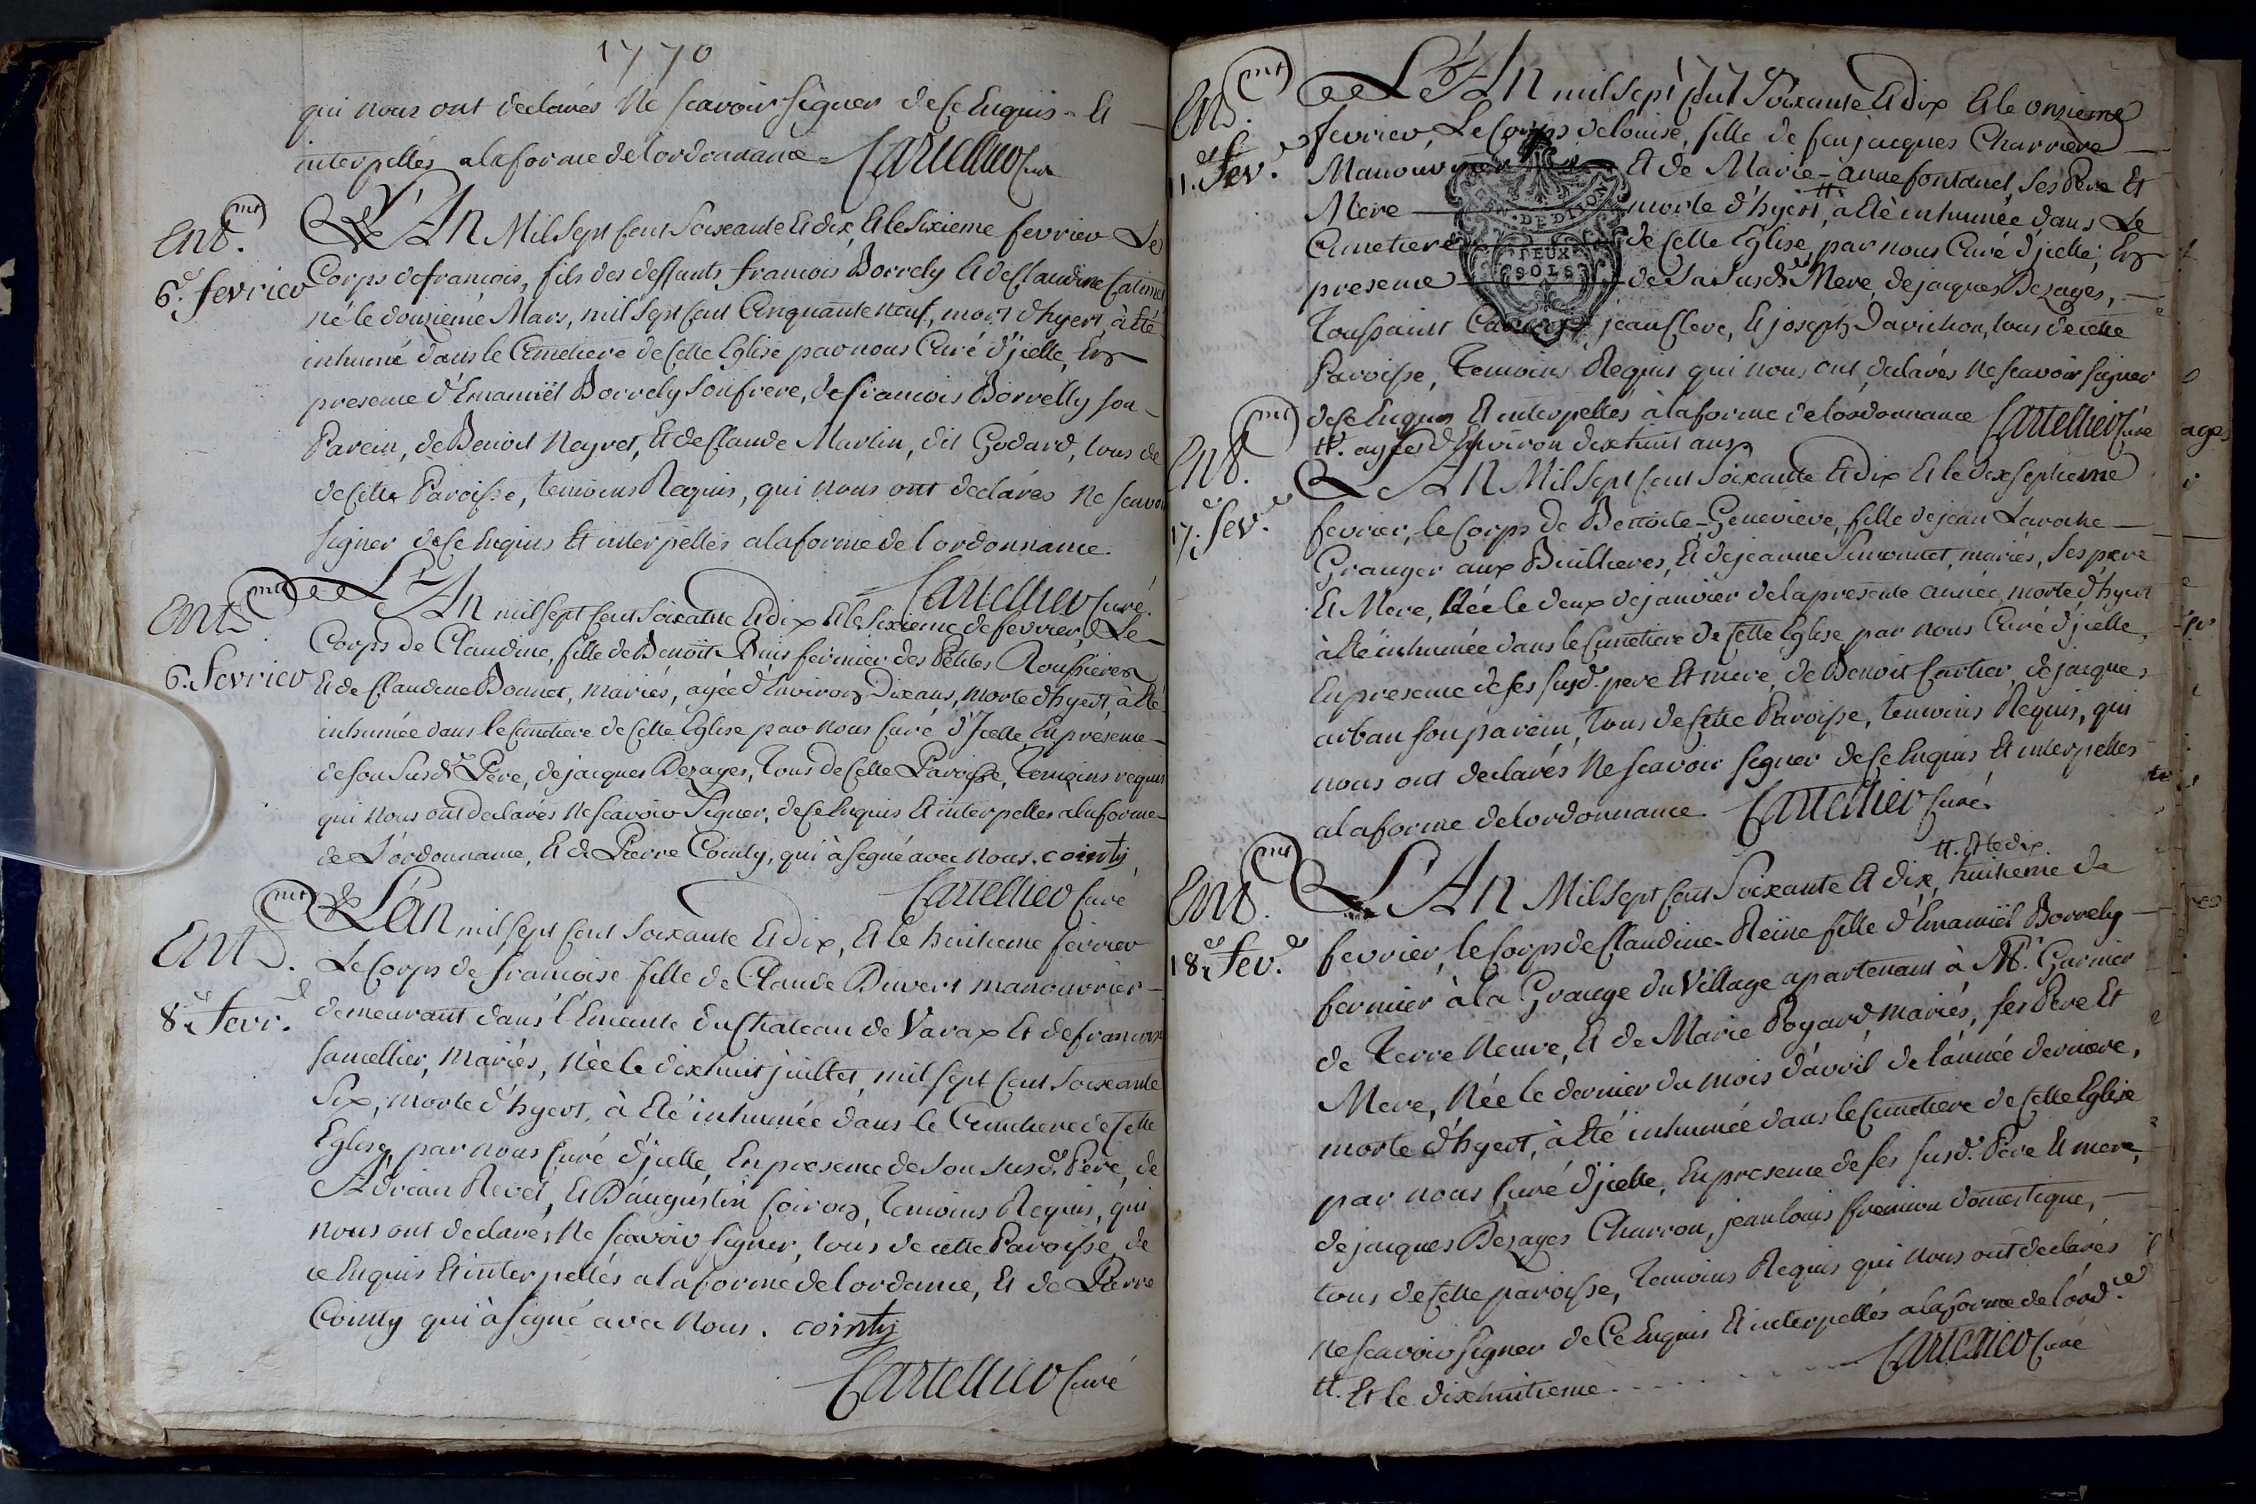 1770
qui nous ont declarés ne scavoir signer de ce Enquis. Et
interpellés a la forme de l'ordonnance. Cartellier Curé
Ent.mt
6.e fevrier
L'An Mil Sept Cent Soixante Et dix, Et le Sixieme fevrier Le
Corps de francois, fils des deffunts francois Borrely Et de Claudine
né le douzieme Mars, mil Sept Cent Cinquante neuf, mort d'hyert, à Eté
inhumé dans le Cimetiere de Cette Eglise par nous Curé d'jcelle, En
presence d'Emanuël Borrely Son frere, de francois Borrelly son
Parein, de Benoit Neyret, Et de Claude Martin, dit Godard, tous de
de Cette Paroisse, temoins Requis, qui nous ont declarés ne scavoir
signer de Ce Enquis Et interpellés a la forme de l'ordonnance.
Cartellier Curé.
Ent.mt
6. fevrier
L'An mil Sept Cent Soixante Et dix Et le Sixieme de fevrier, Le
Corps de Claudine, fille de Benoît Buis fermier des Petites Roussieres
Et de Claudine Bonnet, mariés, agée d'Environ Dix ans, morte d'hyert, à Eté
inhumée dans le Cimetiere de Cette Eglise par nous Curé d'Jcelle En presence
de son Susd.t Pere, de jacques Dezages, Tous de Cette Paroisse, Temoins requis
qui nous ont declarés ne scavoir Signer, de Ce Enquis Et interpellés a la forme
de L'ordonnance, Et de Pierre Cointy, qui à Signé avec nous. cointy
Cartellier Curé
Ent.mt
8.e Fevr.
L'an mil Sept Cent Soixante Et dix, Et le huitieme fevrier
Le Corps de francoise fille de Claude Buvert manouvrier
demeurant dans l'Enceinte du Chateau de Varax Et de francoise
Mariés, née le dix huit juillet, mil Sept Cent Soixante
Six, morte d'hyert, à Eté inhumée dans le Cimetiere de Cette
Eglise, par nous Curé d'jcelle, En presence de Son Susd. Pere, de
Adrian Revel, Et D'augustin Coiron, Temoins Requis, qui
nous ont declarés ne scavoir signer, tous de cette Paroisse, de
ce Enquis Et interpellés a la forme de l'ordonnce, Et de Pierre
Cointy qui à signé avec nous. cointy
Cartellier Curé
Ent.mt
11.e Fev.
1770
L'An mil Sept Cent Soixante Et dix Et le onzieme
fevrier, Le Corps de louise, fille de feu jacques Charriere
Manouvrier Et de Marie-anne fontanel, Ses Pere Et
Mere morte d'hyert tt, à Eté inhumée dans Le
Cimetiere de Cette Eglise, par nous Curé d'jcelle, En
presence de Sa Susd.e Mere, de jacques Dezages,
Toussaint jean Clerc, Et joseph Davichon, tous de cette
Paroisse, Temoins Requis qui nous ont declarés ne scavoir signer
de Ce Enquis Et interpellés à la forme de l'ordonnance Cartellier Curé
tt. agée d'Environ dix huit ans
GEN. DE DIJON
DEUX
SOLS
Ent.mt
17.e Fev.
L'An Mil Sept Cent Soixante Et dix Et le dix septieme
fevrier, le Corps de Benoite-Genevieve, fille de jean Laroche
Granger aux Buillieres, Et de jeanne Simonet, mariés, Ses pere
Et Mere, Née le deux de janvier de la presente année, morte d'hyert
à Eté inhumée dans le Cimetiere de Cette Eglise par nous Curé d'jcelle,
En presence de ses susd. pere Et mere, de Benoit Cartier, de jacques
arban son parein, Tous de Cette Paroisse, Temoins Requis, qui
nous ont declarés ne scavoir signer de Ce Enquis Et interpellés
a la forme de l'ordonnance. Cartellier Curé
Ent.mt
18.e Fev.
tt. Et le dix
L'An Mil Sept Cent Soixante Et dix, huitieme de
fevrier, le Corps de Claudine-Reine fille d'Emanuël Borrely
fermier à la Grange du Village apartenant à Mr. Garnier
de Terre Neuve, Et de Marie Poyard, mariés, ses Pere Et
Mere, Née le dernier du mois d'avril de l'année derniere,
morte d'hyert, à Eté inhumée dans le Cimetiere de Cette Eglise
par nous Curé d'jcelle, En presence de ses susd. Pere Et mere,
de jacques Dezages Charron, jean louis fremion domestique,
tous de Cette paroisse, Temoins Requis qui nous ont declarés
ne scavoir Signer de Ce Enquis Et interpellés a la forme de l'ord.ce
Cartellier Curé
tt. Et le dix huitieme